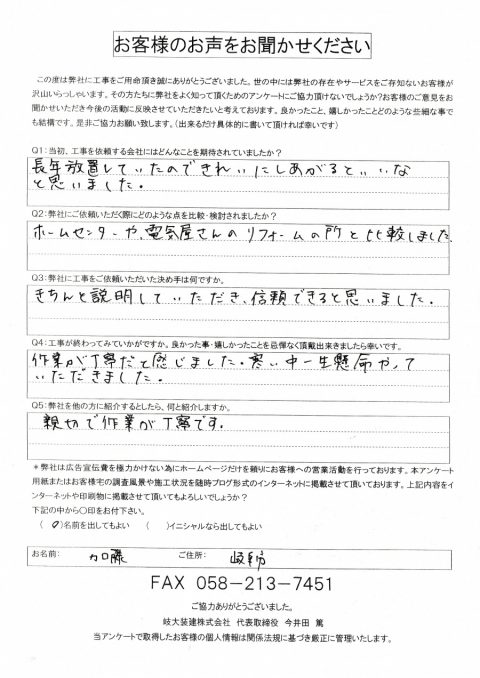 お客様のお声をお聞かせください
この度は弊社に工事をご用命頂き誠にありがとうございました。世の中には弊社の存在やサービスをご存知ないお客様が
沢山いらっしゃいます。その方たちに弊社をよく知って頂くためのアンケートにご協力頂けないでしょうか?お客様のご意見をお
聞かせいただき今後の活動に反映させていただきたいと考えております。良かったこと、嬉しかったことどのような些細な事で
も結構です。是非ご協力お願い致します。(出来るだけ具体的に書いて頂ければ幸いです)
Q1:当初、工事を依頼する会社にはどんなことを期待されていましたか?
長年放置していたのできれいにしあがるといいな
と思いました。
Q2:弊社にご依頼いただく際にどのような点を比較・検討されましたか?
ホームセンターや、電気屋さんのリフォームの所と比較しました。
Q3:弊社に工事をご依頼いただいた決め手は何ですか。
きちんと説明していただき、信頼できると思いました。
Q4:工事が終わってみていかがですか。良かった事・嬉しかったことを忌憚なく頂戴出来きましたら幸いです。
作業が丁寧だと感じました。寒い中一生懸命やって
いただきました。
Q5:弊社を他の方に紹介するとしたら、何と紹介しますか。
親切で作業が丁寧です。
*弊社は広告宣伝費を極力かけない為にホームページだけを頼りにお客様への営業活動を行っております。本アンケート
用紙またはお客様宅の調査風景や施工状況を随時ブログ形式のインターネットに掲載させて頂いております。上記内容をイ
ンターネットや印刷物に掲載させて頂いてもよろしいでしょうか?
下記の中から○印をお付下さい。
(○)名前を出してもよい ( )イニシャルなら出してもよい
お名前: 加藤 ご住所: 岐阜市
FAX 058-213-7451
ご協力ありがとうございました。
岐大装建株式会社 代表取締役 今井田 篤
当アンケートで取得したお客様の個人情報は関係法規に基づき厳正に管理いたします。